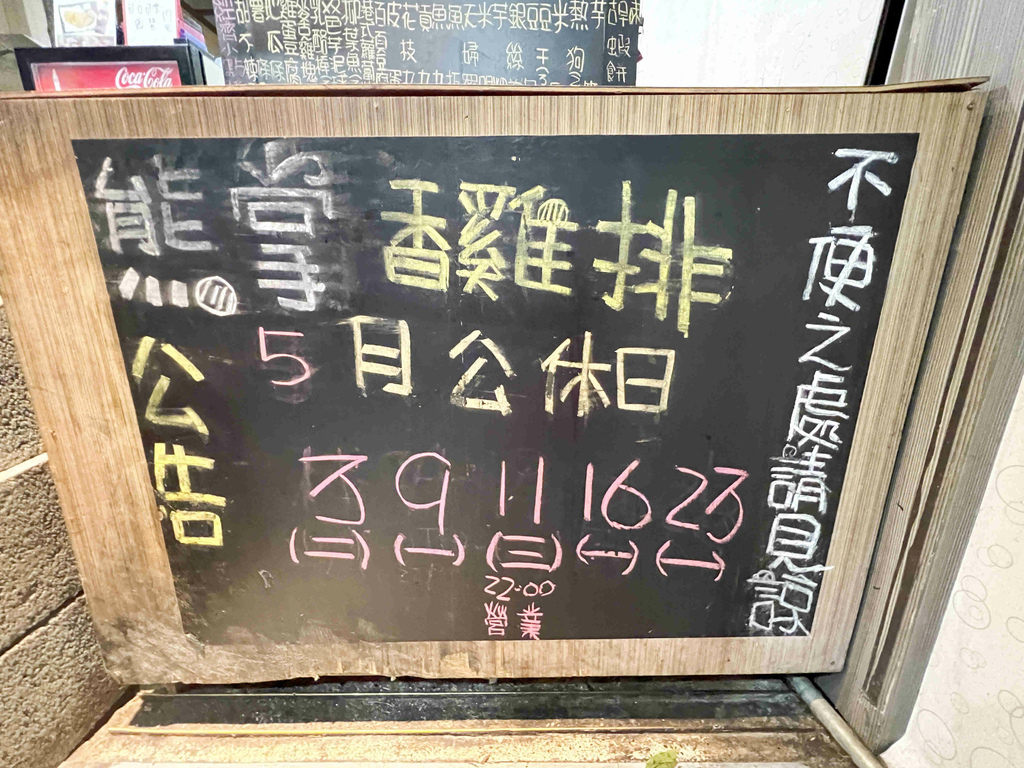 Coca-Cola
熊掌香雞排
公告
5月公休日
3 9 11 16 23
(二) (一) (三) (一) (一)
22:00
營業
不便之處請見諒